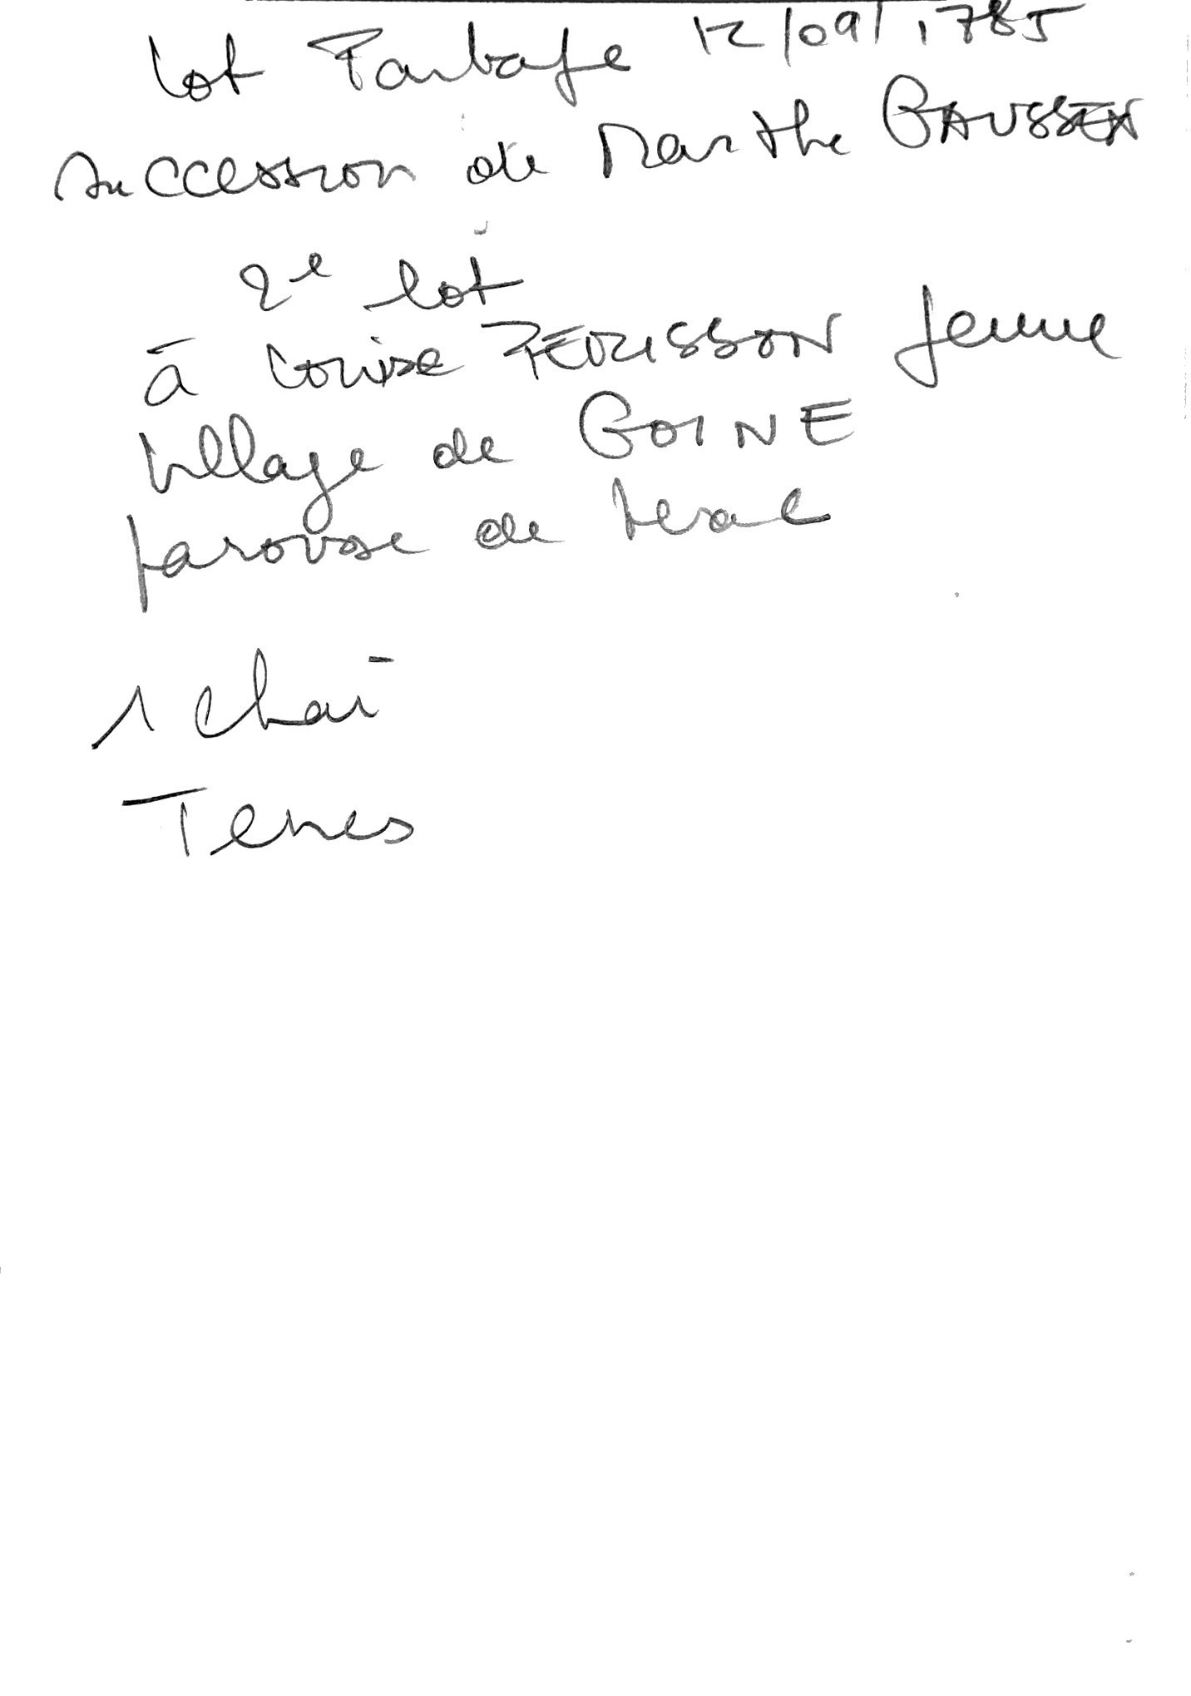 lot Partage 12/09/1785
succession de Marthe GAUSSEN
2e lot
à Louise PEURISSON femme
village de GOINE
paroisse de
1 chai
Terres